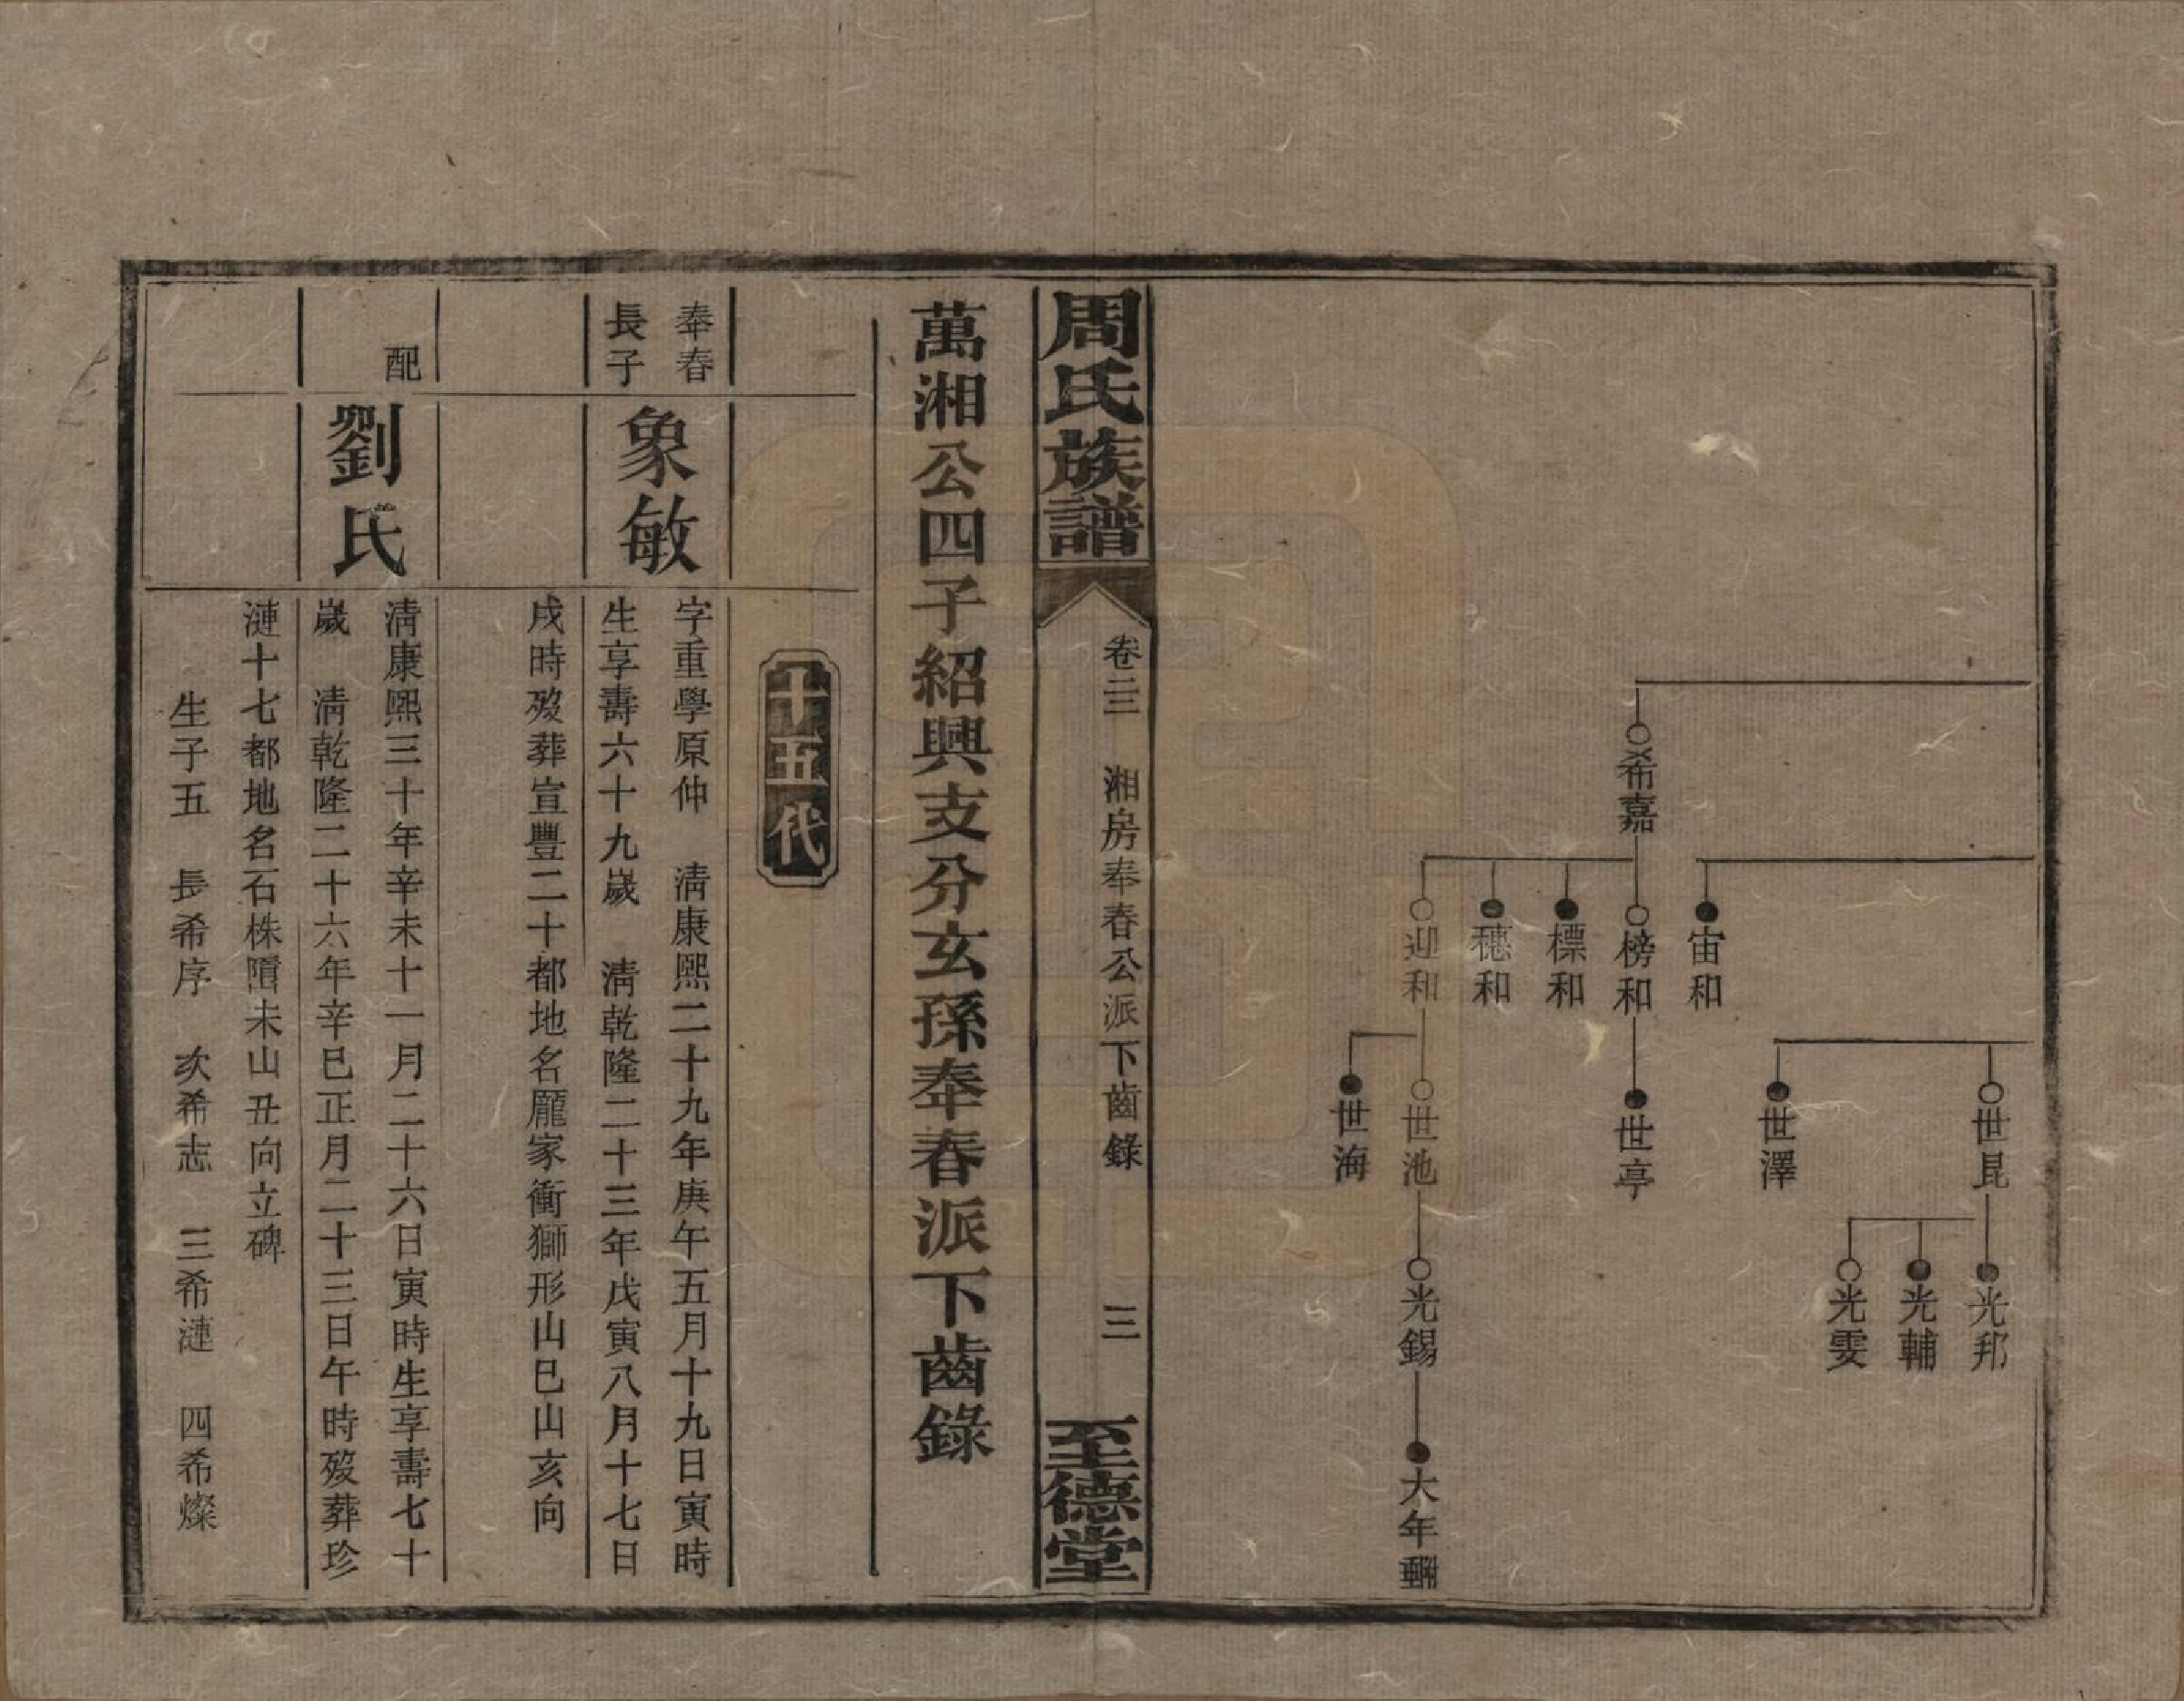 希嘉
宙和
榜和
標和
穗和
迎和
世昆
世澤
世亭
世池
世海
光邦
光輔
光雯
光錫
大年
周氏族譜
卷三 湘房奉春公派下齒錄 三
至德堂
萬湘公四子紹興支分玄孫奉春派下齒錄
十五代
奉春
長子
象敏
字重學原仲 清康熙二十九年庚午五月十九日寅時
生享壽六十九歲 清乾隆二十三年戊寅八月十七日
戌時歿葬宣豐二十都地名龐家衝獅形山巳山亥向
配
劉氏
清康熙三十年辛未十一月二十六日寅時生享壽七十
歲 清乾隆二十六年辛巳正月二十三日午時歿葬珍
漣十七都地名石株墤未山丑向立碑
生子五 長希序 次希志 三希漣 四希燦